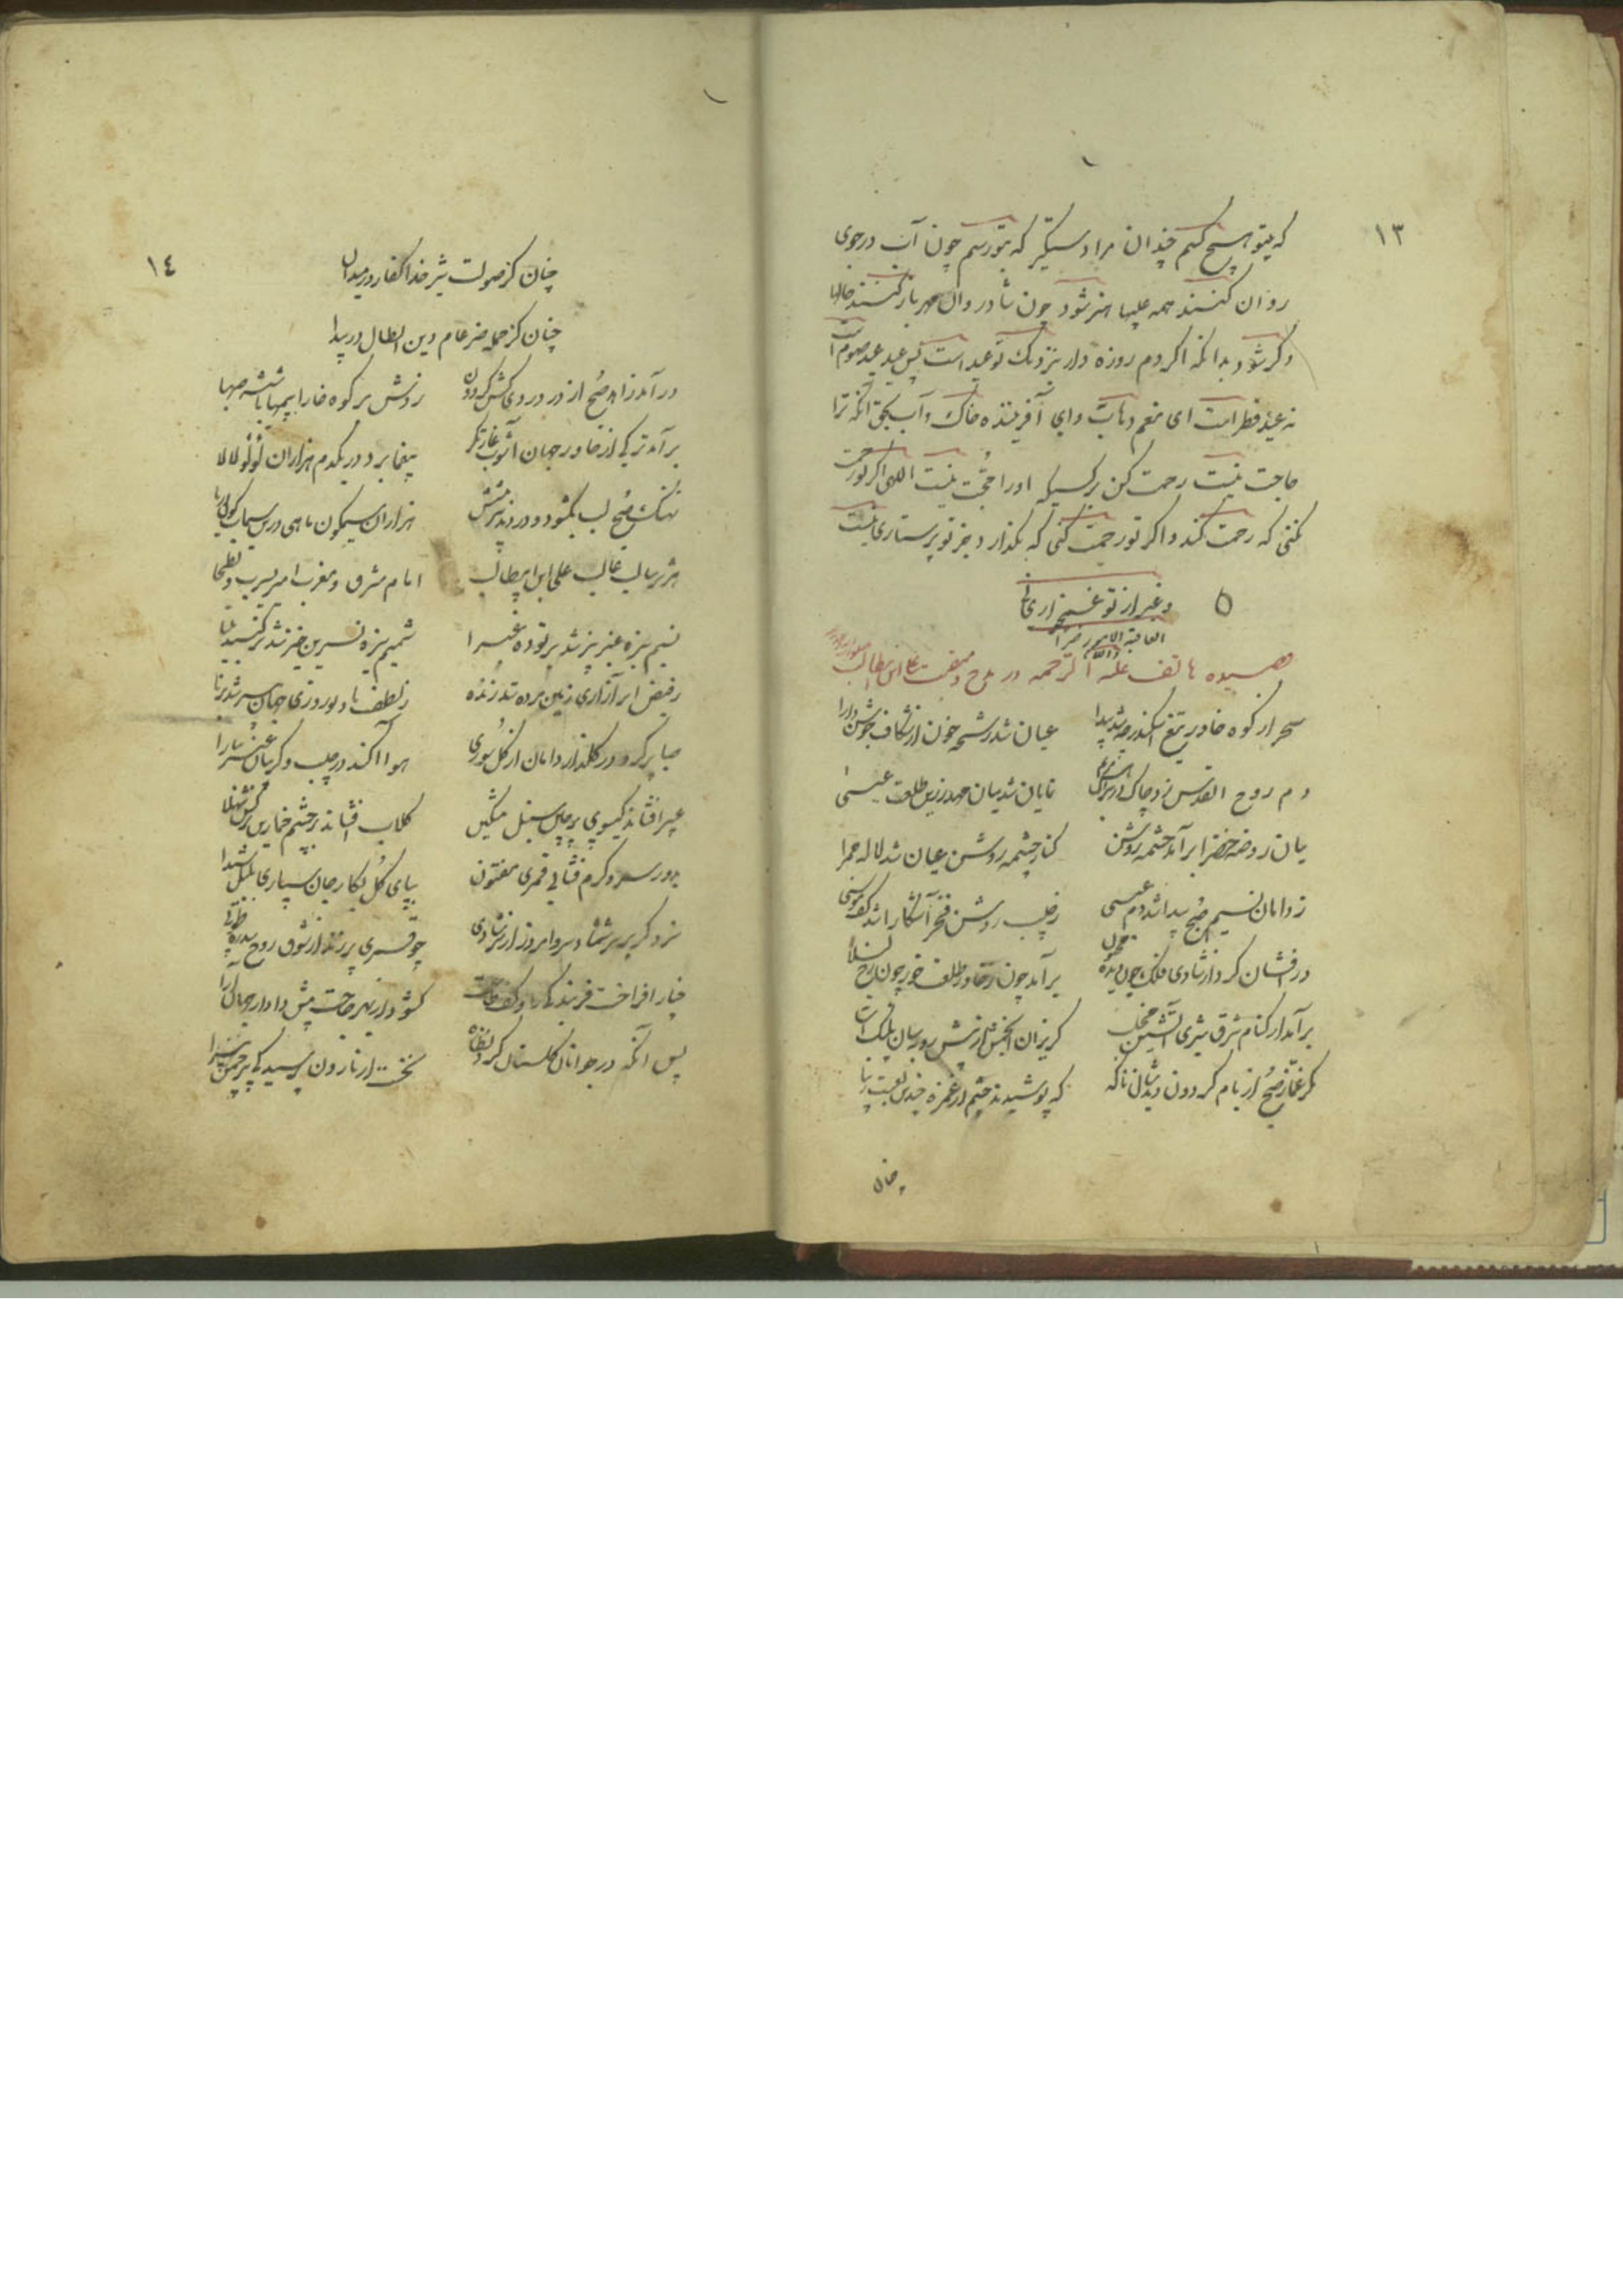 ١٣
که بیتو هیچ کنم چندان مرا دستگیر که بتو رسم چون آب در جوی
روان کنند همه عیبها هنر شود چون شاد روان مهر باز کنند خالها
دکر شود بدانکه اکر دم روزه دار نزدیک تو عید است پس عید عید صوم است
نه عید فطر است ای منعم وهاب وای آفریننده خاک و آب بحق آنکه ترا
حاجت نیست رحمت کن بر کسیکه اورا حجت نیست اللهی اکر تو رحمت
نکنی که رحمت کند و اکر تو رحمت کنی که بگذار و جز تو پرستاری نیست
و غیر از تو غمخواری
قصیده هاتف علیه الرحمه در مدح و منقبت علی ابن ابیطالب
سحر از کوه خاور تیغ اسکندر چو شد پیدا
عیان شد رشحه خون از شکاف جوشن دارا
دم روح القدس زد چاک در پیراهن مریم
نمایان شد میان مهد زرین طلعت عیسی
میان روضه خضرا برآمد چشمه روشن
کنار چشمه روشن عیان شد لاله حمرا
ز دامان نسیم صبح پیدا شد دم عیسی
ز جیب روشن فجر آشکارا شد کف موسی
درفشان کرد از شادی فلک چون دیده مجنون
برآمد چون ز خاور طلعت خور چون رخ لیلا
برآمد از کنام شرق شیری آتشین مخلب
گریزان انجمش از پیش روبه سان پلنگ آسا
مکر غماز صبح از بام گردون دید شان ناکه
که پوشیدند چشم از غمزه چندین لعبت زیبا
چنان
١٤
چنان کز صولت شیر خدا کفار در میدان
چنان کز حمله ضرغام دین ابطال در بیدا
درآمد زاهد صبح از در دردی کش گردون
زدش بر کوه خارا بیمحابا شیشه صهبا
برآمد ترکی از خاور جهان آشوب غارتگر
بیغما برد در یکدم هزاران لؤلؤ لالا
نهنک صبح لب بگشود و دزدیدند سر پیشش
هزاران سیمگون ماهی درین سیماب گون دریا
هژبر سالب غالب علی ابن ابیطالب
امام مشرق و مغرب امیر یثرب و بطحا
نسیم سبزه عنبر بیز شد بر توده غبرا
شمیم سبزه نسرین خیز شد بر کنبد مینا
ز فیض ابر آزاری زمین مرده شد زنده
ز لطف باد نوروزی جهان پیر شد برنا
صبا پر کرد در گلزار دامان از گل سوری
هوا آکند در جیب و گریبان عنبر سارا
عبیر افشاند کیسوی پرچین سنبل مشکین
گلاب افشاند بر چشم خمارین نرگس شهلا
بدور سرو گرم فشانی قمری مفتون
بپای گل بکار جان سپاری بلبل شیدا
سزد گر بر سر شمشاد و سرو امروز از شادی
چو قمری پر زند از شوق روح سدره و طوبی
چنار افراخت قد بندگی را و کف طاعت
گشود از بهر حاجت پیش دادار جهان آرا
پس آنگه در جوانان گلستان کرد نظاره
نخست از نارون پرسید کای بر چمن پیرا